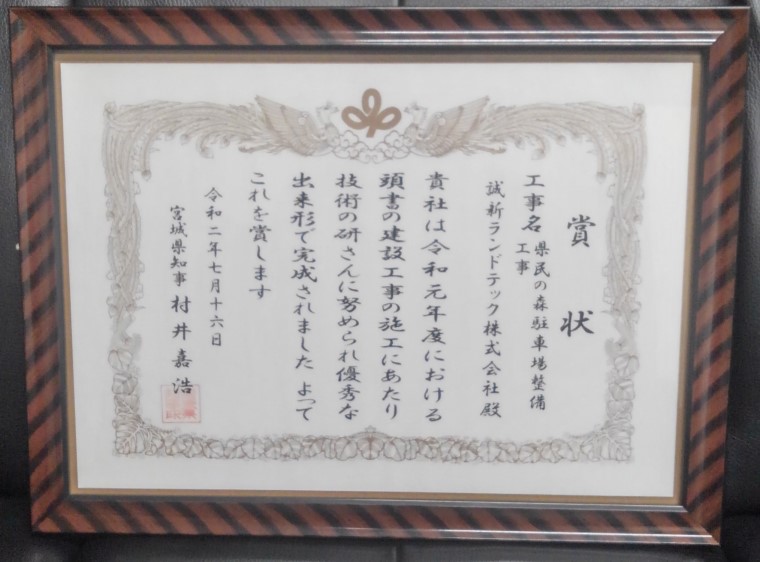 賞状
工事名 県民の森駐車場整備
工事
誠新ランドテック株式会社 殿
貴社は令和元年度における
頭書の建設工事の施工にあたり
技術の研さんに努められ優秀な
出来形で完成されました よって
これを賞します
令和二年七月十六日
宮城県知事 村井嘉浩